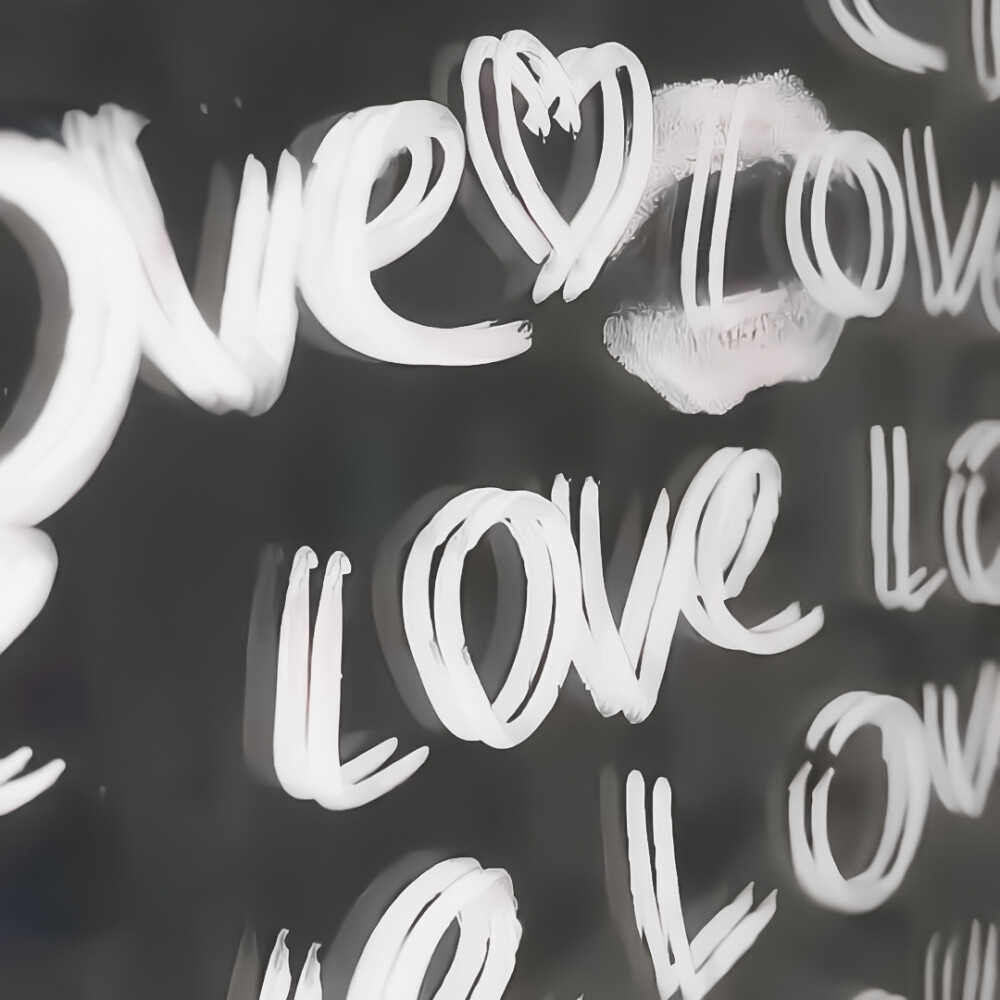 ove♡ Love
Love Lo
Lov